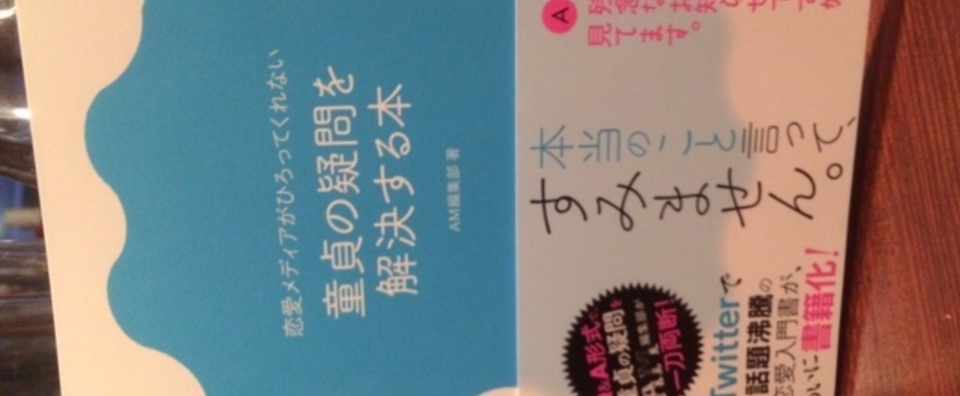 恋愛メディアがひろってくれない
童貞の疑問を
解決する本
AM編集部 著
A
見てます。
本当のこと言って、
すみません。
Q&A形式で
童貞の疑問を
AM編集部が
一刀両断!
Twitterで
話題沸騰の
恋愛入門書が、
ついに書籍化!